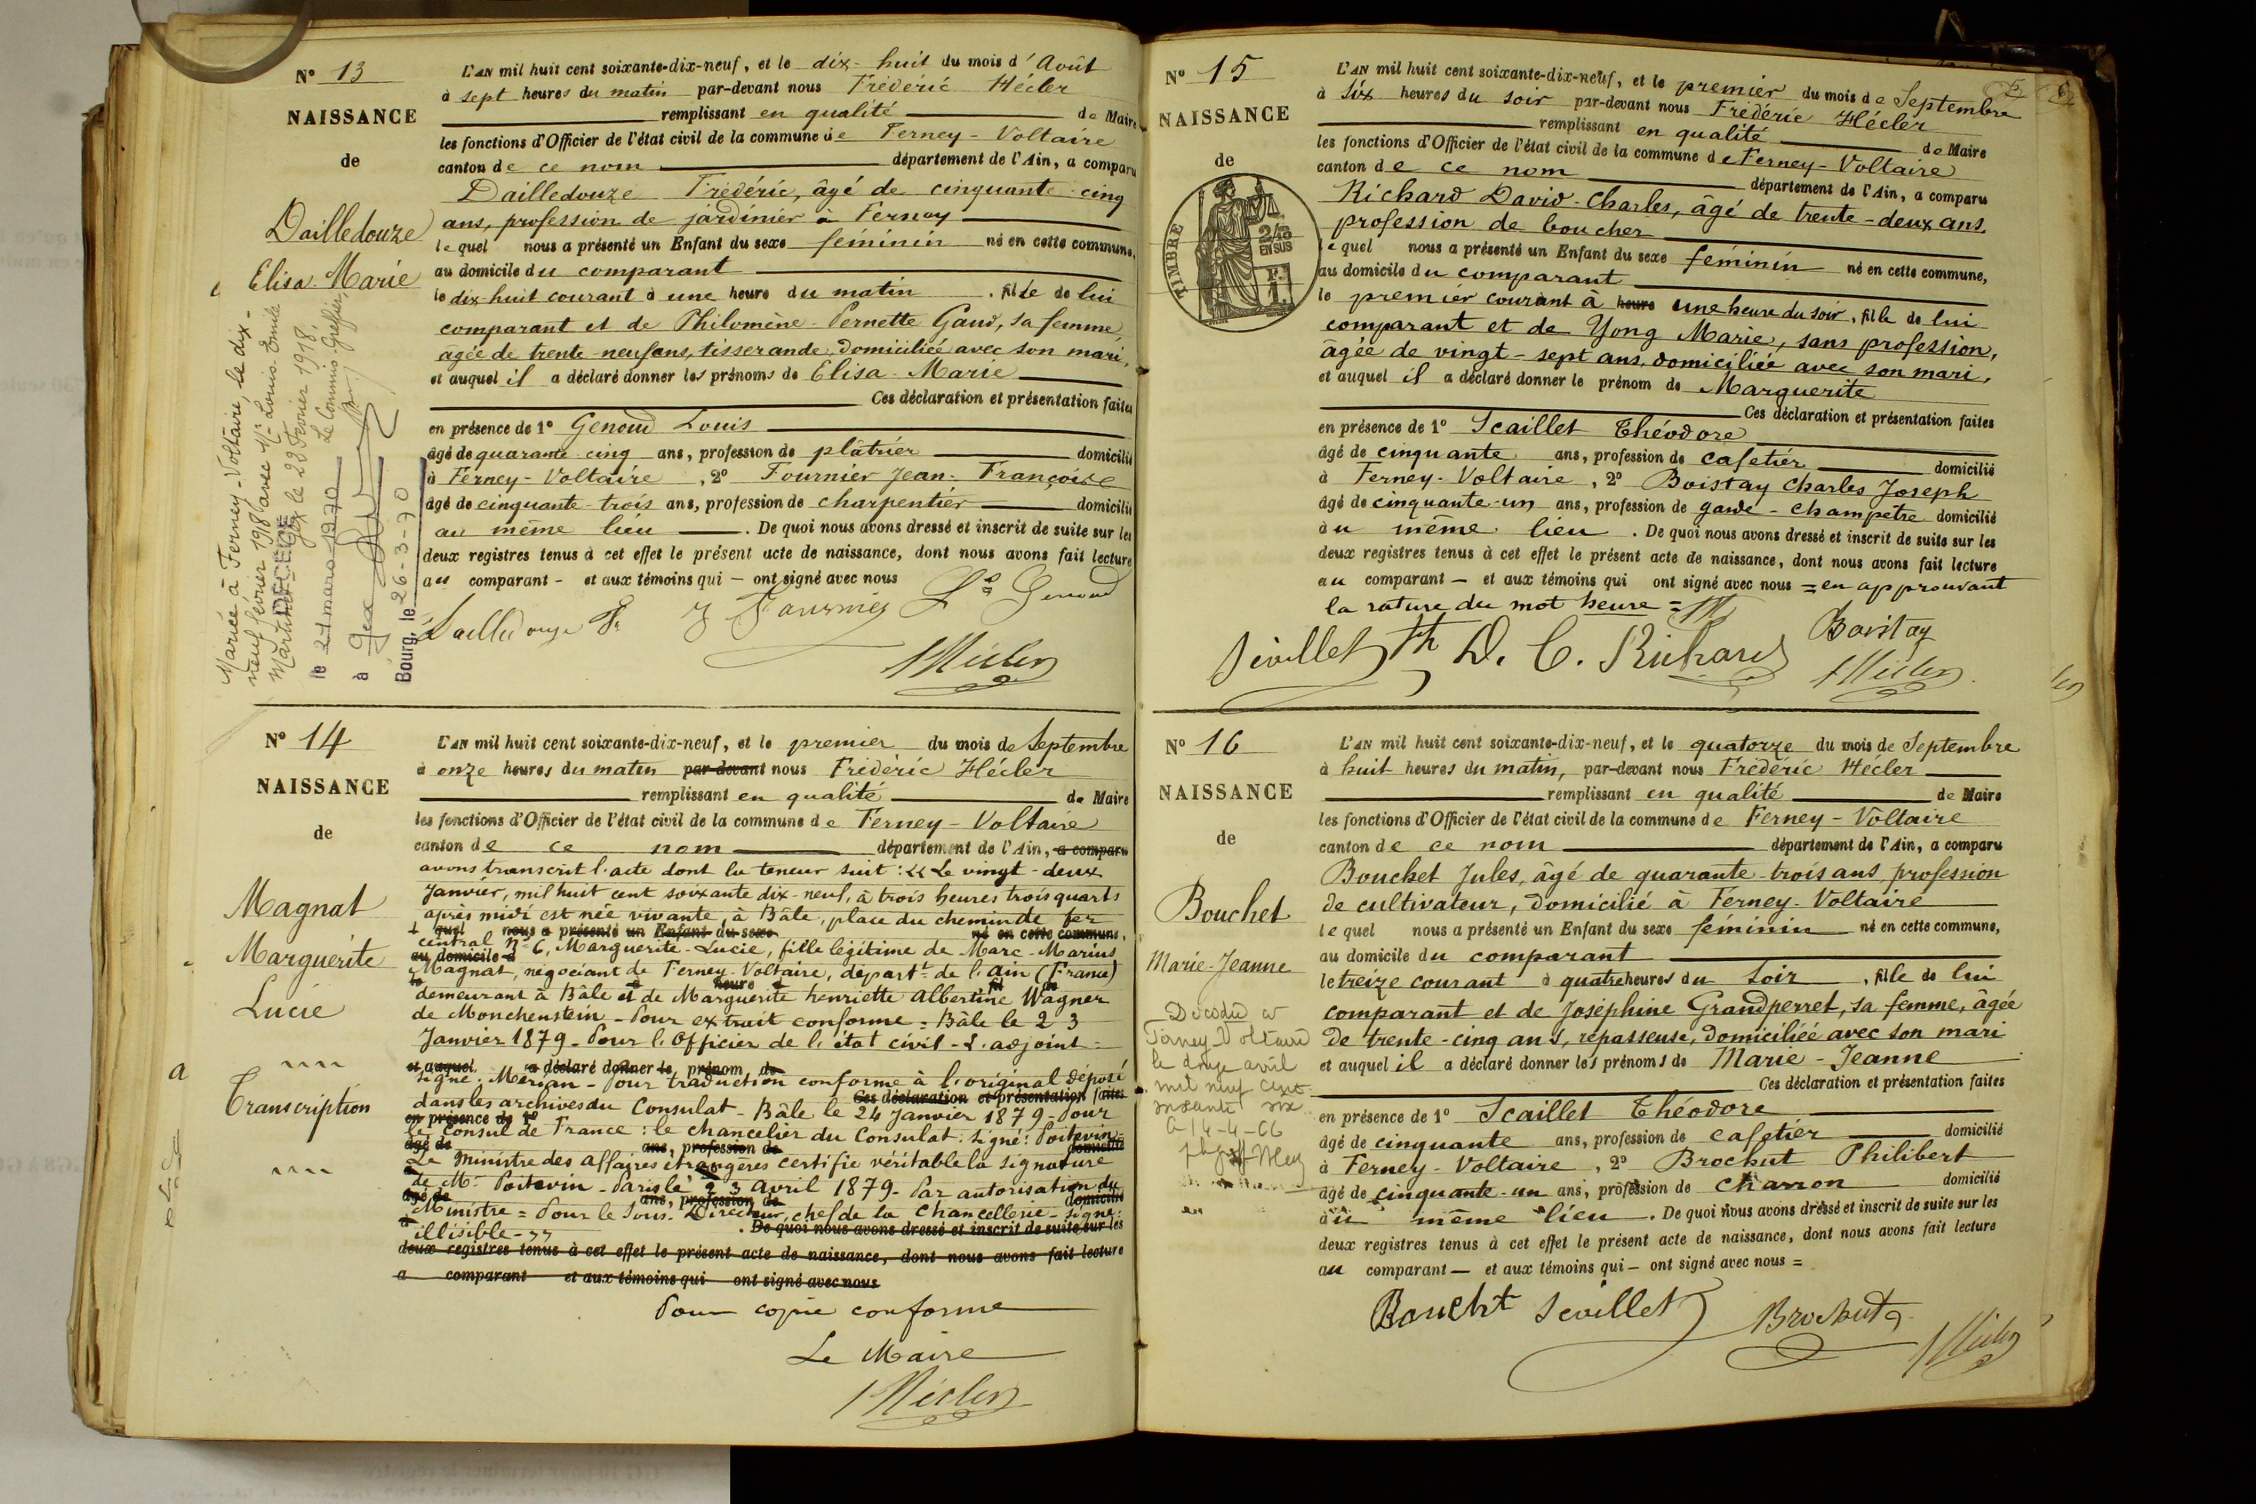 N° 13
NAISSANCE
de
Dailledouze
Elisa-Marie
Mariée à Ferney-Voltaire, le dix-
neuf février 1918 avec Mr Louis-Emile
Martinet Gex le 22 Février 1918.
Le Commis-Greffier,
DÉCÉDÉE
le 21 mars 1970
à Gex
Bourg, le 26-3-70
L'AN mil huit cent soixante-dix-neuf, et le dix-huit du mois d'Août
à sept heures du matin par-devant nous Frédéric Hécler
remplissant en qualité de Maire
les fonctions d'Officier de l'état civil de la commune de Ferney-Voltaire
canton de ce nom département de l'Ain, a comparu
Dailledouze Frédéric, âgé de cinquante-cinq
ans, profession de jardinier à Ferney
lequel nous a présenté un Enfant du sexe féminin né en cette commune,
au domicile du comparant
le dix-huit courant à une heure du matin, fille de lui
comparant et de Philomène-Pernette Gaud, sa femme
âgée de trente-neuf ans, tisserande, domiciliée avec son mari,
et auquel il a déclaré donner les prénoms de Elisa-Marie
Ces déclaration et présentation faites
en présence de 1° Genoud Louis
âgé de quarante-cinq ans, profession de plâtrier domicilié
à Ferney-Voltaire, 2° Fournier Jean-Françoise
âgé de cinquante-trois ans, profession de charpentier domicilié
au même lieu. De quoi nous avons dressé et inscrit de suite sur les
deux registres tenus à cet effet le présent acte de naissance, dont nous avons fait lecture
au comparant - et aux témoins qui - ont signé avec nous
Dailledouze Fr J Fournier Ls Genoud
Hécler
N° 14
NAISSANCE
de
Magnat
Marguerite
Lucie
Transcription
L'AN mil huit cent soixante-dix-neuf, et le premier du mois de Septembre
à onze heures du matin par-devant nous Frédéric Hécler
remplissant en qualité de Maire
les fonctions d'Officier de l'état civil de la commune de Ferney-Voltaire
canton de ce nom département de l'Ain, a comparu
avons transcrit l'acte dont la teneur suit : « Le vingt-deux
Janvier, mil huit cent soixante dix-neuf, à trois heures trois quarts
après midi est née vivante, à Bâle, place du chemin de fer
quel nous a présenté un Enfant du sexe né en cette commune,
central N° 6, Marguerite-Lucie, fille légitime de Marc-Marius
au domicile d
Magnat, négociant de Ferney-Voltaire, départt de l'ain (France)
le à heure d fil de
demeurant à Bâle et de Marguerite henriette Albertine Wagner
de Monchenstein - Pour extrait conforme = Bâle le 23
Janvier 1879 - Pour l'Officier de l'état civil - L'adjoint =
et auquel a déclaré donner le prénom de
signé : Merian - Pour traduction conforme à l'original déposé
Ces déclaration et présentation faites
dans les archives du Consulat - Bâle le 24 Janvier 1879 - Pour
en présence de 1°
le Consul de France : le chancelier du Consulat : signé : Poitevin -
âgé de ans, profession de domicilié
Le Ministre des affaires étrangères certifie véritable la signature
de Mr Poitevin - Paris le 23 Avril 1879 - Par autorisation du
âgé de ans, profession de domicilié
Ministre = Pour le Sous-Directeur, chef de la Chancellerie - signé :
illisible - » . De quoi nous avons dressé et inscrit de suite sur les
deux registres tenus à cet effet le présent acte de naissance, dont nous avons fait lecture
a comparant et aux témoins qui ont signé avec nous
Pour copie conforme
Le Maire
Hécler
N° 15
NAISSANCE
de
TIMBRE
2/10
EN SUS
L'AN mil huit cent soixante-dix-neuf, et le premier du mois de Septembre
à six heures du soir par-devant nous Frédéric Hécler
remplissant en qualité de Maire
les fonctions d'Officier de l'état civil de la commune de Ferney-Voltaire
canton de ce nom département de l'Ain, a comparu
Richard David-Charles, âgé de trente-deux ans,
profession de boucher
lequel nous a présenté un Enfant du sexe féminin né en cette commune,
au domicile du comparant
le premier courant à heure une heure du soir, fille de lui
comparant et de Yong Marie, sans profession,
âgée de vingt-sept ans, domiciliée avec son mari,
et auquel il a déclaré donner le prénom de Marguerite
Ces déclaration et présentation faites
en présence de 1° Scaillet Théodore
âgé de cinquante ans, profession de cafetier domicilié
à Ferney-Voltaire, 2° Boistay Charles Joseph
âgé de cinquante-un ans, profession de garde-champêtre domicilié
au même lieu. De quoi nous avons dressé et inscrit de suite sur les
deux registres tenus à cet effet le présent acte de naissance, dont nous avons fait lecture
au comparant - et aux témoins qui ont signé avec nous = en approuvant
la rature du mot heure =
Scaillet Th D. C. Richard Boistay
Hécler
N° 16
NAISSANCE
de
Bouchet
Marie-Jeanne
Décédée à
Ferney-Voltaire
le douze avril
mil neuf cent
soixante six
14-4-66
L'AN mil huit cent soixante-dix-neuf, et le quatorze du mois de Septembre
à huit heures du matin, par-devant nous Frédéric Hécler
remplissant en qualité de Maire
les fonctions d'Officier de l'état civil de la commune de Ferney-Voltaire
canton de ce nom département de l'Ain, a comparu
Bouchet Jules, âgé de quarante-trois ans, profession
de cultivateur, domicilié à Ferney-Voltaire
lequel nous a présenté un Enfant du sexe féminin né en cette commune,
au domicile du comparant
le treize courant à quatre heures du soir, fille de lui
comparant et de Joséphine Grandperret, sa femme, âgée
de trente-cinq ans, repasseuse, domiciliée avec son mari
et auquel il a déclaré donner les prénoms de Marie-Jeanne
Ces déclaration et présentation faites
en présence de 1° Scaillet Théodore
âgé de cinquante ans, profession de cafetier domicilié
à Ferney-Voltaire, 2° Brochut Philibert
âgé de cinquante-un ans, profession de charron domicilié
au même lieu. De quoi nous avons dressé et inscrit de suite sur les
deux registres tenus à cet effet le présent acte de naissance, dont nous avons fait lecture
au comparant - et aux témoins qui - ont signé avec nous =
Bouchet Scaillet Brochut
Hécler